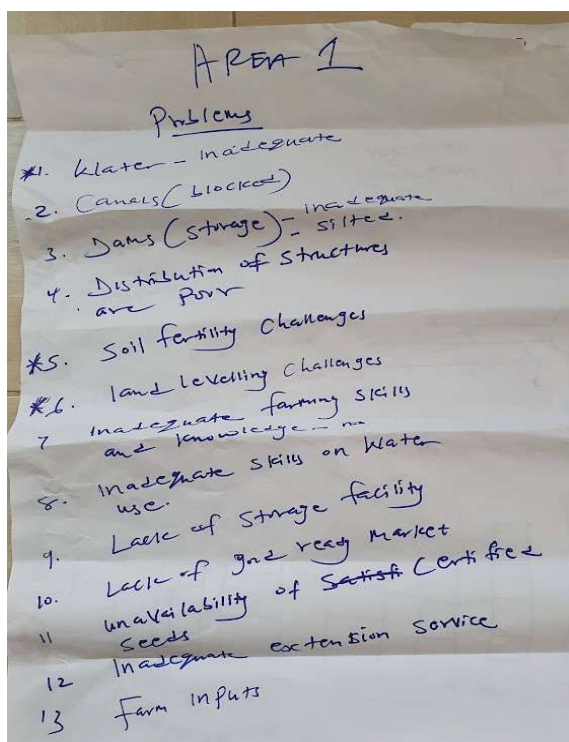 AREA 1
Problems
*1. Water - inadequate
2. Canals (blocked)
3. Dams (storage) - inadequate
- silted.
4. Distribution of structures
are poor
*5. Soil fertility challenges
*6. land levelling challenges
7 inadequate farming skills
and knowledge -
8. Inadequate skills on water
use.
9. Lack of storage facility
10. Lack of good ready market
11 unavailability of Satisfi Certified
seeds
12 Inadequate extension service
13 Farm inputs